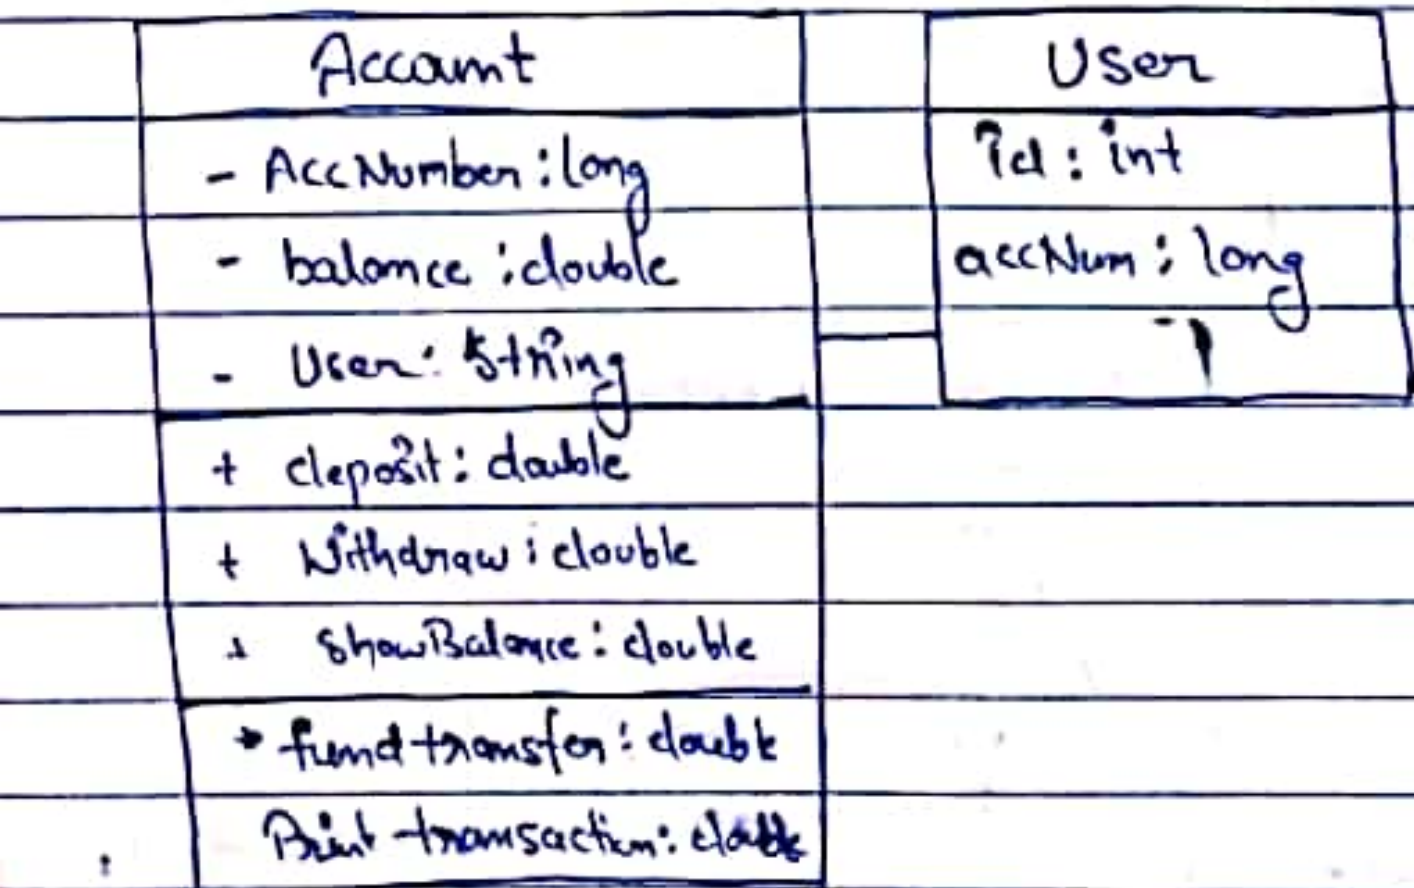 Account
- AccNumber : long
- balance : double
- User : String
+ deposit : double
+ Withdraw : double
+ ShowBalance : double
+ fund transfer : double
Print transaction : double
User
id : int
accNum : long